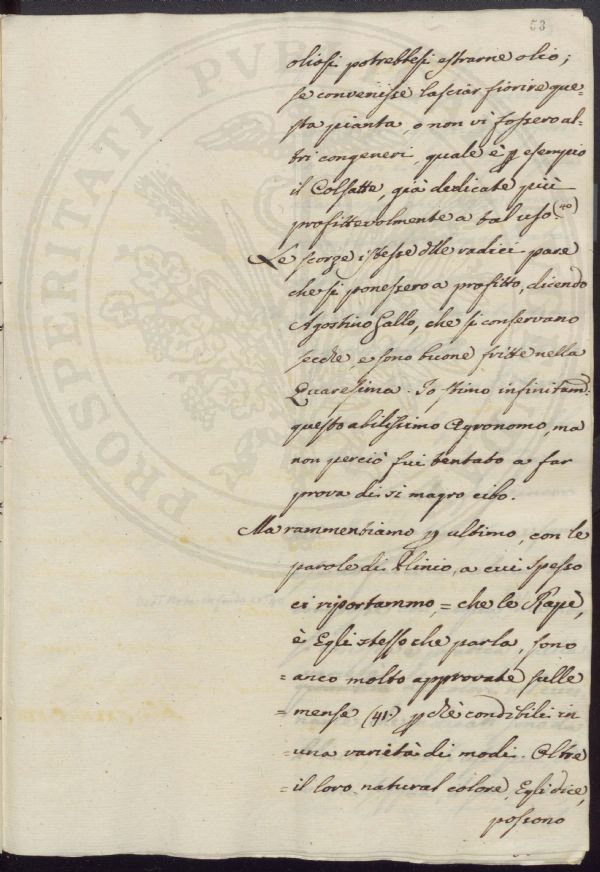 53
oliosi potrebbesi estrarne olio;
se convenisse lasciar fiorire que=
sta pianta, o non vi fossero al=
tri congeneri, quale è p esempio
il Colsatte, già dedicate più
profittevolmente a tal uso. (40)
Le scorze istesse dlle radici pare
che si ponessero a profitto, dicendo
Agostino Gallo, che si conservano
secche, e sono buone fritte nella
Quaresima. Io stimo infinitamte
questo abilissimo Agronomo, ma
non perciò fui tentato a far
prova di sì magro cibo.
Ma rammentiamo p ultimo, con le
parole di Plinio, a cui spesso
ci riportammo, = che le Rape,
è Egli stesso che parla, sono
= anco molto approvate sulle
= mense (41.) p chè condibili in
= una varietà di modi. Oltre
= il loro natural colore, Egli dice,
possono
PROSPERITATI PVBLI